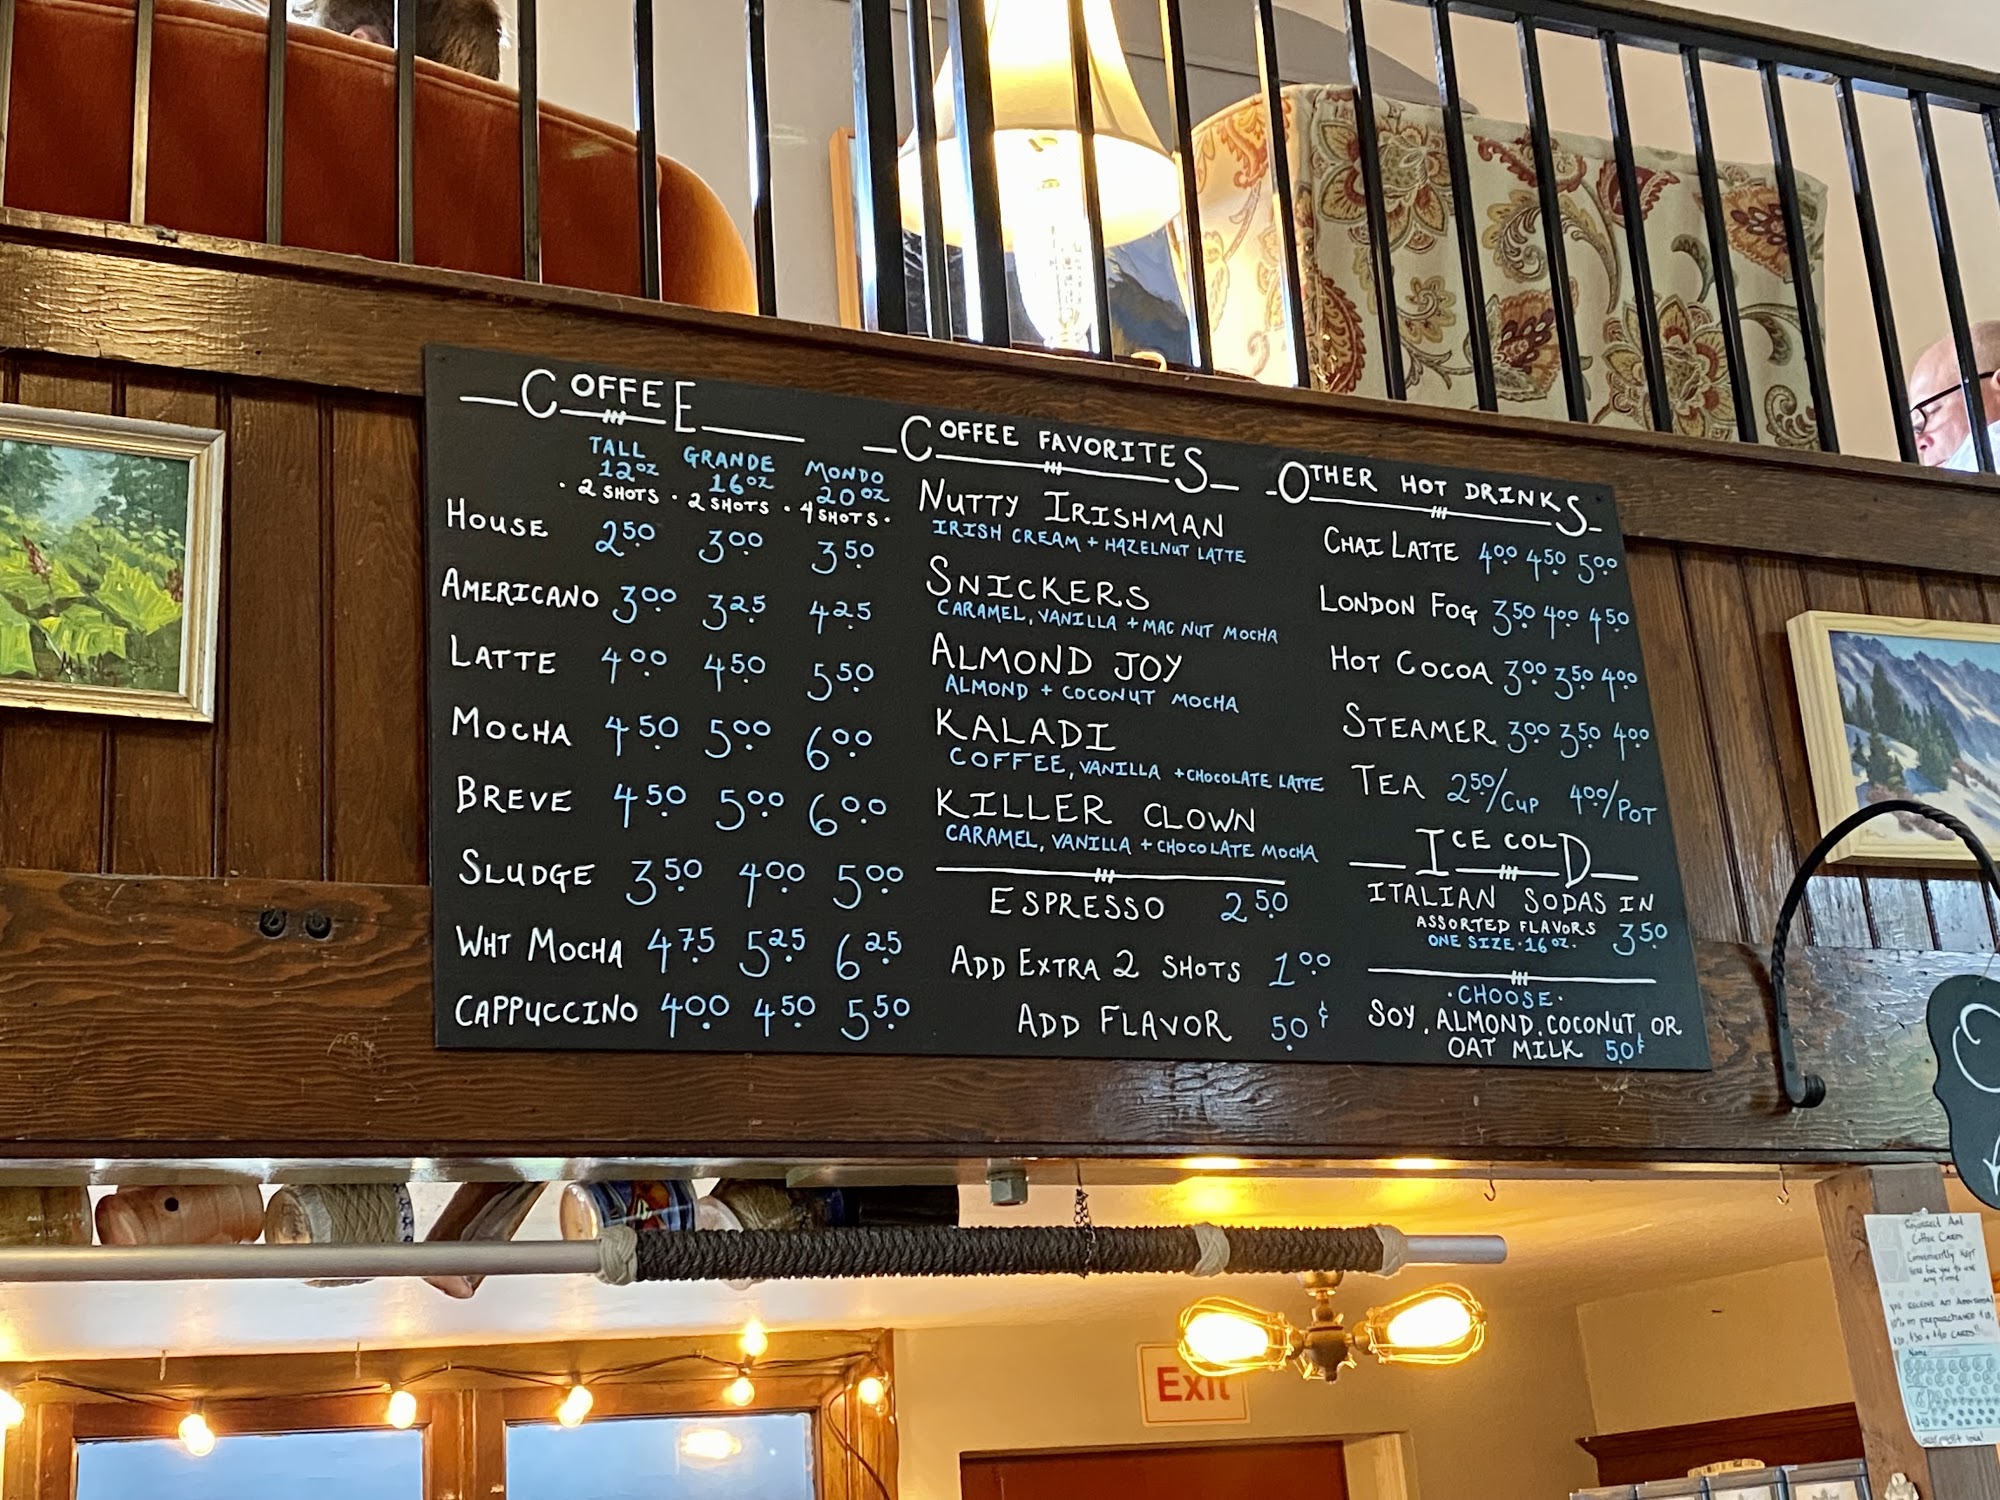 COFFEE
TALL GRANDE MONDO
12oz 16oz 20oz
· 2 SHOTS · 2 SHOTS · 4 SHOTS ·
HOUSE 2.50 3.00 3.50
AMERICANO 3.00 3.25 4.25
LATTE 4.00 4.50 5.50
MOCHA 4.50 5.00 6.00
BREVE 4.50 5.00 6.00
SLUDGE 3.50 4.00 5.00
WHT MOCHA 4.75 5.25 6.25
CAPPUCCINO 4.00 4.50 5.50
COFFEE FAVORITES
NUTTY IRISHMAN
IRISH CREAM + HAZELNUT LATTE
SNICKERS
CARAMEL, VANILLA + MAC NUT MOCHA
ALMOND JOY
ALMOND + COCONUT MOCHA
KALADI
COFFEE, VANILLA + CHOCOLATE LATTE
KILLER CLOWN
CARAMEL, VANILLA + CHOCOLATE MOCHA
ESPRESSO 2.50
ADD EXTRA 2 SHOTS 1.00
ADD FLAVOR 50¢
OTHER HOT DRINKS
CHAI LATTE 4.00 4.50 5.00
LONDON FOG 3.50 4.00 4.50
HOT COCOA 3.00 3.50 4.00
STEAMER 3.00 3.50 4.00
TEA 2.50/CUP 4.00/POT
ICE COLD
ITALIAN SODAS IN
ASSORTED FLAVORS 3.50
ONE SIZE · 16oz.
· CHOOSE ·
SOY, ALMOND, COCONUT, OR
OAT MILK 50¢
Exit
Coffee Cards
Conveniently Kept
here for you to use
any time
Name